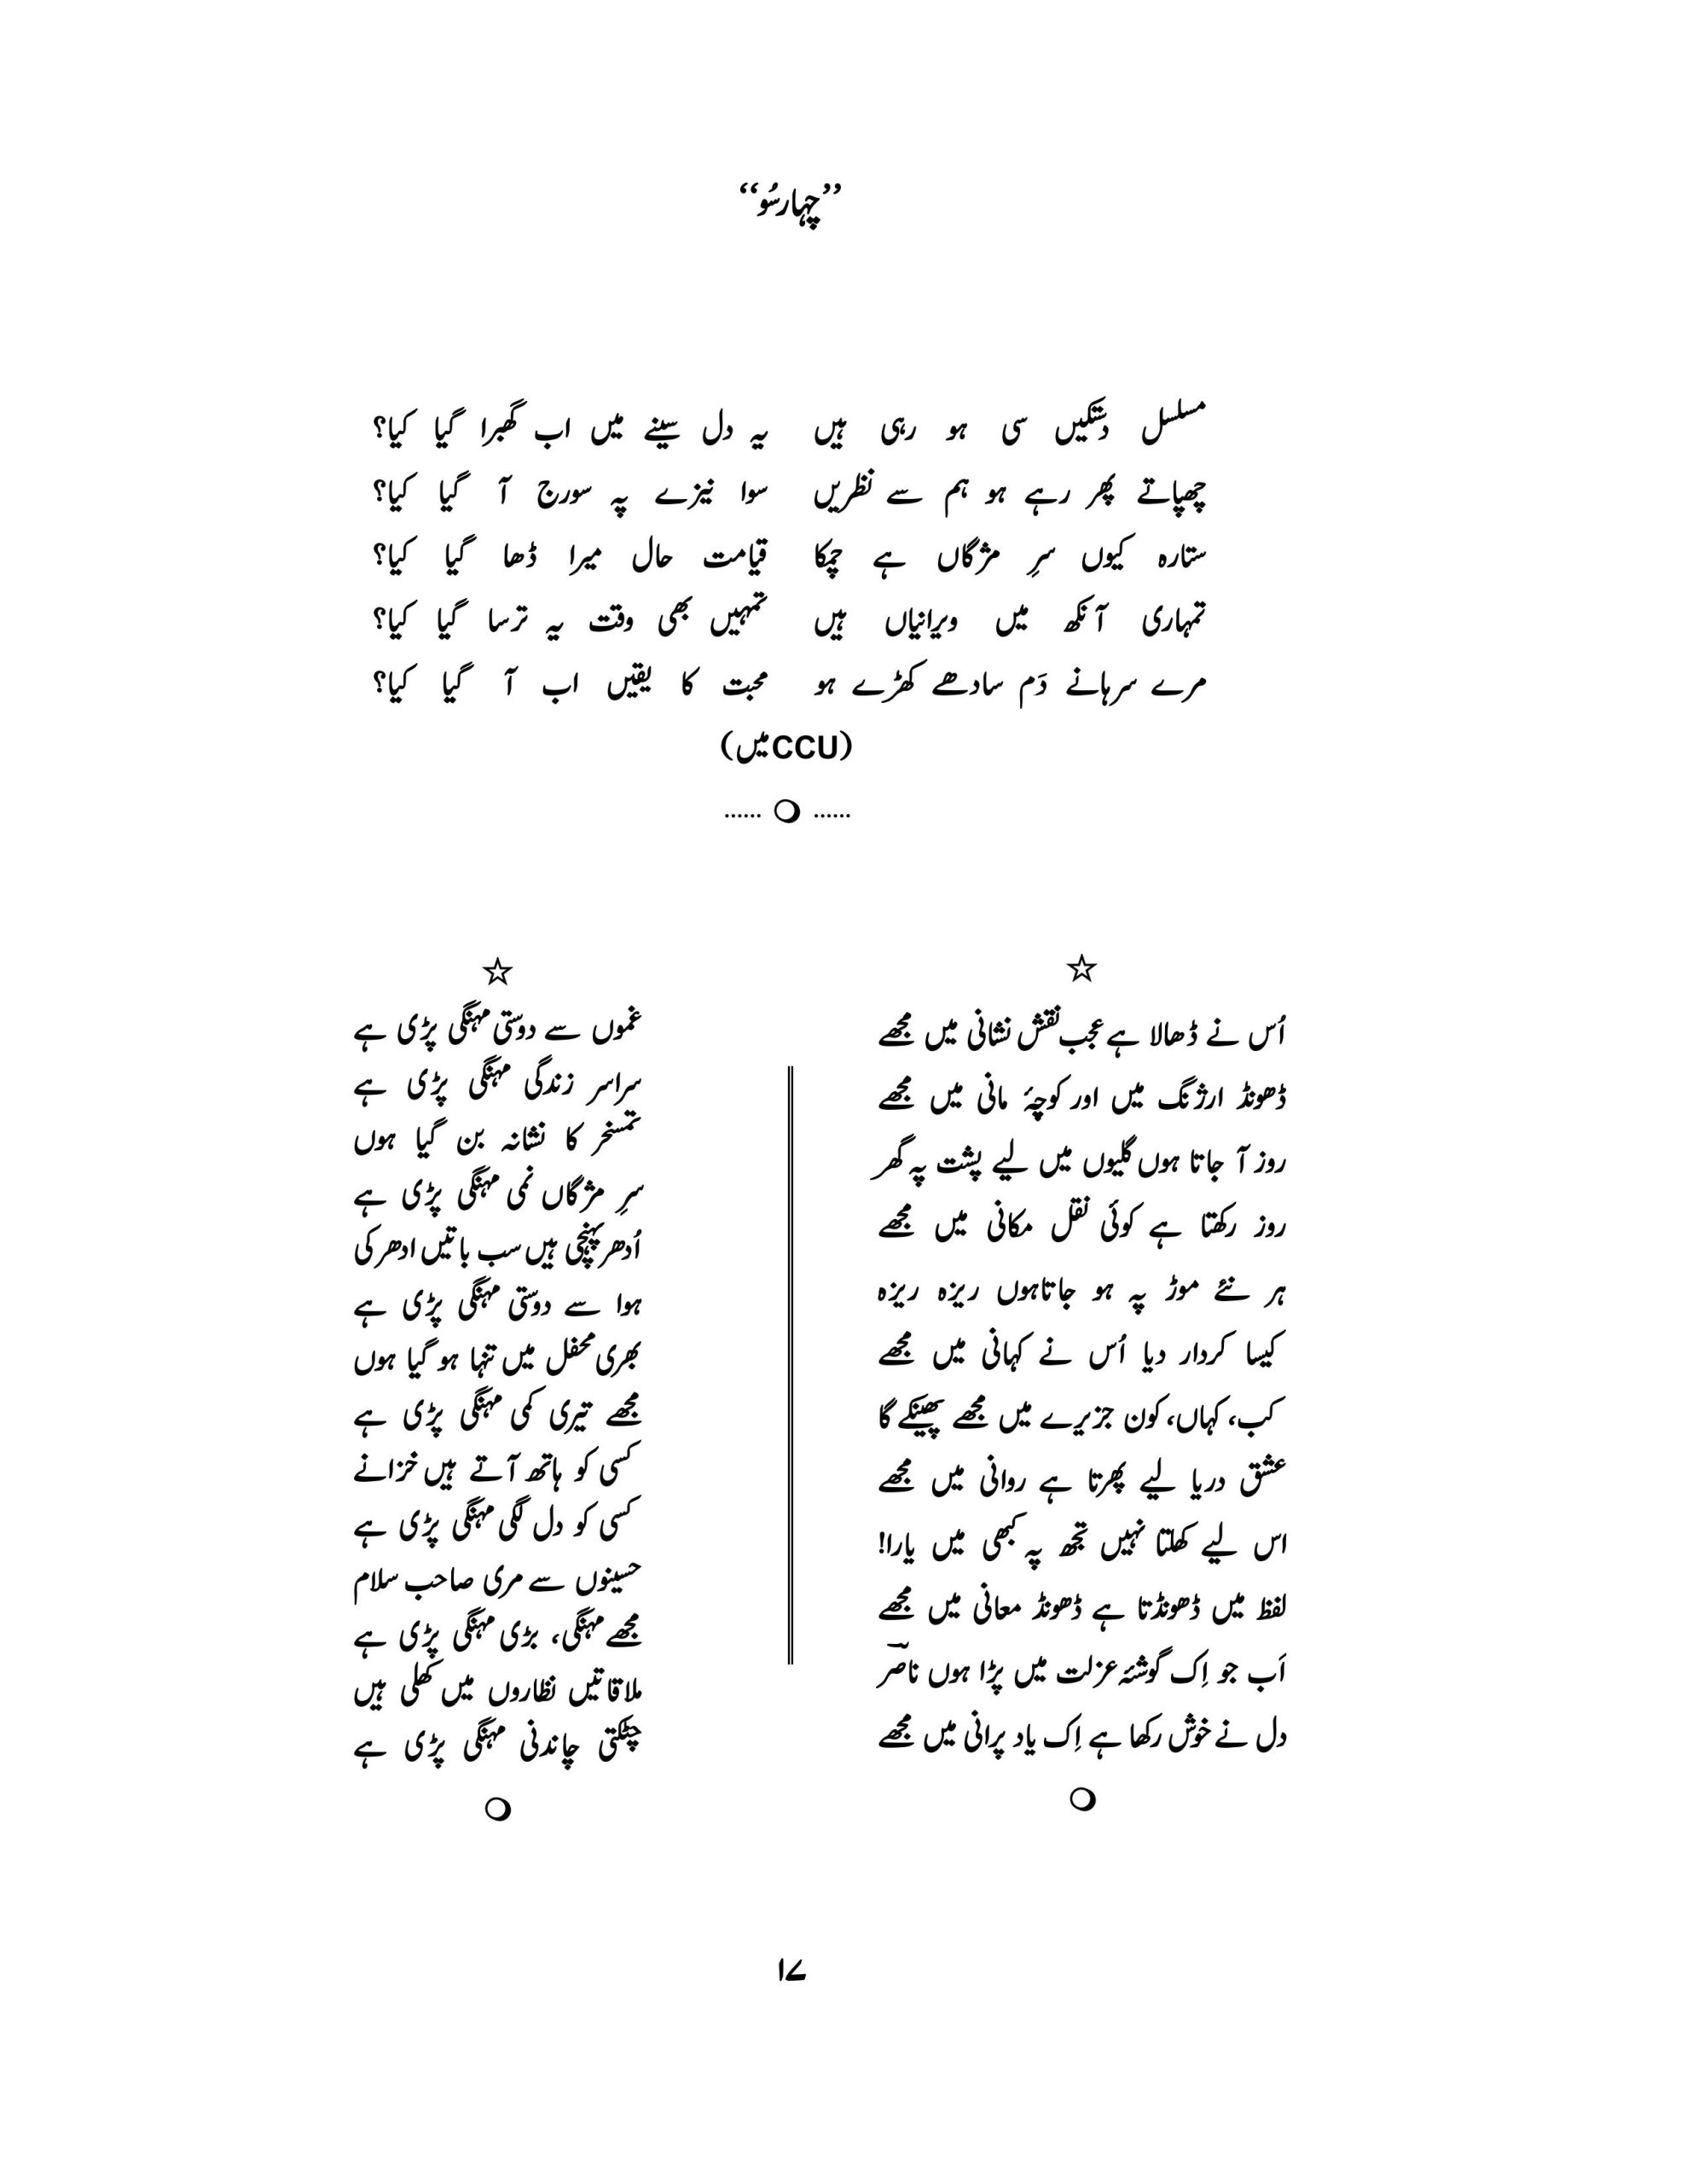 ”چہارسُو“
مسلسل دستکیں سی ہو رہی ہیں یہ دل سینے میں اب گھبرا گیا کیا؟
چھپاتے پھر رہے ہو ہم سے نظریں سوا نیزے پہ سورج آ گیا کیا؟
ستارہ کیوں سرِ مژگاں ہے چمکا قیامت حال میرا ڈھا گیا کیا؟
تمہاری آنکھ میں ویرانیاں ہیں تمہیں بھی وقت یہ ترسا گیا کیا؟
مرے سرہانے دَم سادھے کھڑے ہو محبت کا یقیں اب آ گیا کیا؟
(CCU میں)
...... ❍ ......
☆
اُس نے ڈھالا ہے عجب نقش نشانی میں مجھے
ڈھونڈ ارژنگ میں اور کوچۂ مانی میں مجھے
روز آ جاتا ہوں گلیوں میں لیے پشت پہ گھر
روز رکھتا ہے کوئی نقل مکانی میں مجھے
ہر نئے موڑ پہ ہو جاتاہوں ریزہ ریزہ
کیسا کردار دیا اُس نے کہانی میں مجھے
کب، کہاں، کون جزیرے میں مجھے پھینکے گا
عشق دریا لیے پھرتا ہے روانی میں مجھے
اس لیے کھلتا نہیں تجھ پہ کبھی میں یارا!
لفظ میں ڈھونڈتا ہے ڈھونڈ معانی میں مجھے
اَب جو اِک گوشۂ عزلت میں پڑا ہوں ناصرؔ
دل نے خوش رکھا ہے اِک یاد پرانی میں مجھے
❍
☆
غموں سے دوستی مہنگی پڑی ہے
سراسر زندگی مہنگی پڑی ہے
تمسخر کا نشانہ بن گیا ہوں
سرِ مژگاں نمی مہنگی پڑی ہے
اُدھر پہنچی ہیں سب باتیں ادھر کی
ہوا سے دوستی مہنگی پڑی ہے
بھری محفل میں تنہا ہو گیا ہوں
مجھے تیری کمی مہنگی پڑی ہے
کسی کو ہاتھ آتے ہیں خزانے
کسی کو دل لگی مہنگی پڑی ہے
حسینوں سے مری صاحب سلام
مجھے مہنگی، بڑی مہنگی پڑی ہے
ملاقاتیں نظاروں میں کھلی ہیں
چٹکتی چاندنی مہنگی پڑی ہے
❍
۱۷